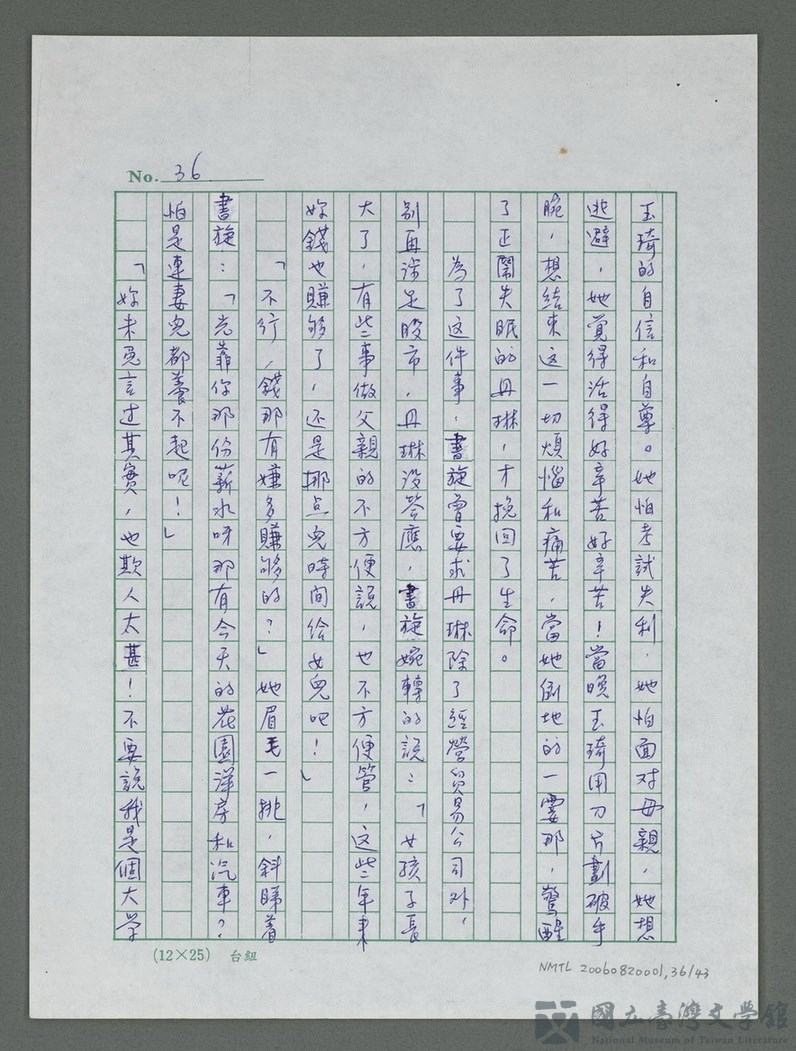 No. 36
玉琦的自信和自尊。她怕考試失利，她怕面对母親，她想
逃避，她覺得活得好辛苦好辛苦！當晚玉琦用刀片劃破手
腕，想結束这一切煩惱和痛苦，當她倒地的一霎那，驚醒
了正鬧失眠的丹琳，才挽回了生命。
為了这件事，書旋曾要求丹琳除了經營貿易公司外，
別再涉足股市，丹琳没答應，書旋婉轉的說：「女孩子長
大了，有些事做父親的不方便說，也不方便管，这些年来
妳錢也賺够了，还是挪点兒時间给女兒吧！」
「不行，錢那有嫌多賺够的？」她眉毛一挑，斜睇着
書旋：「光靠你那份薪水呀那有今天的花園洋房和汽車？
怕是連妻兒都養不起呢！」
「妳未免言过其實，也欺人太甚！不要說我是個大学
(12×25) 台組
NMTL 20060820001,36/43
國立臺灣文學館
National Museum of Taiwan Literature